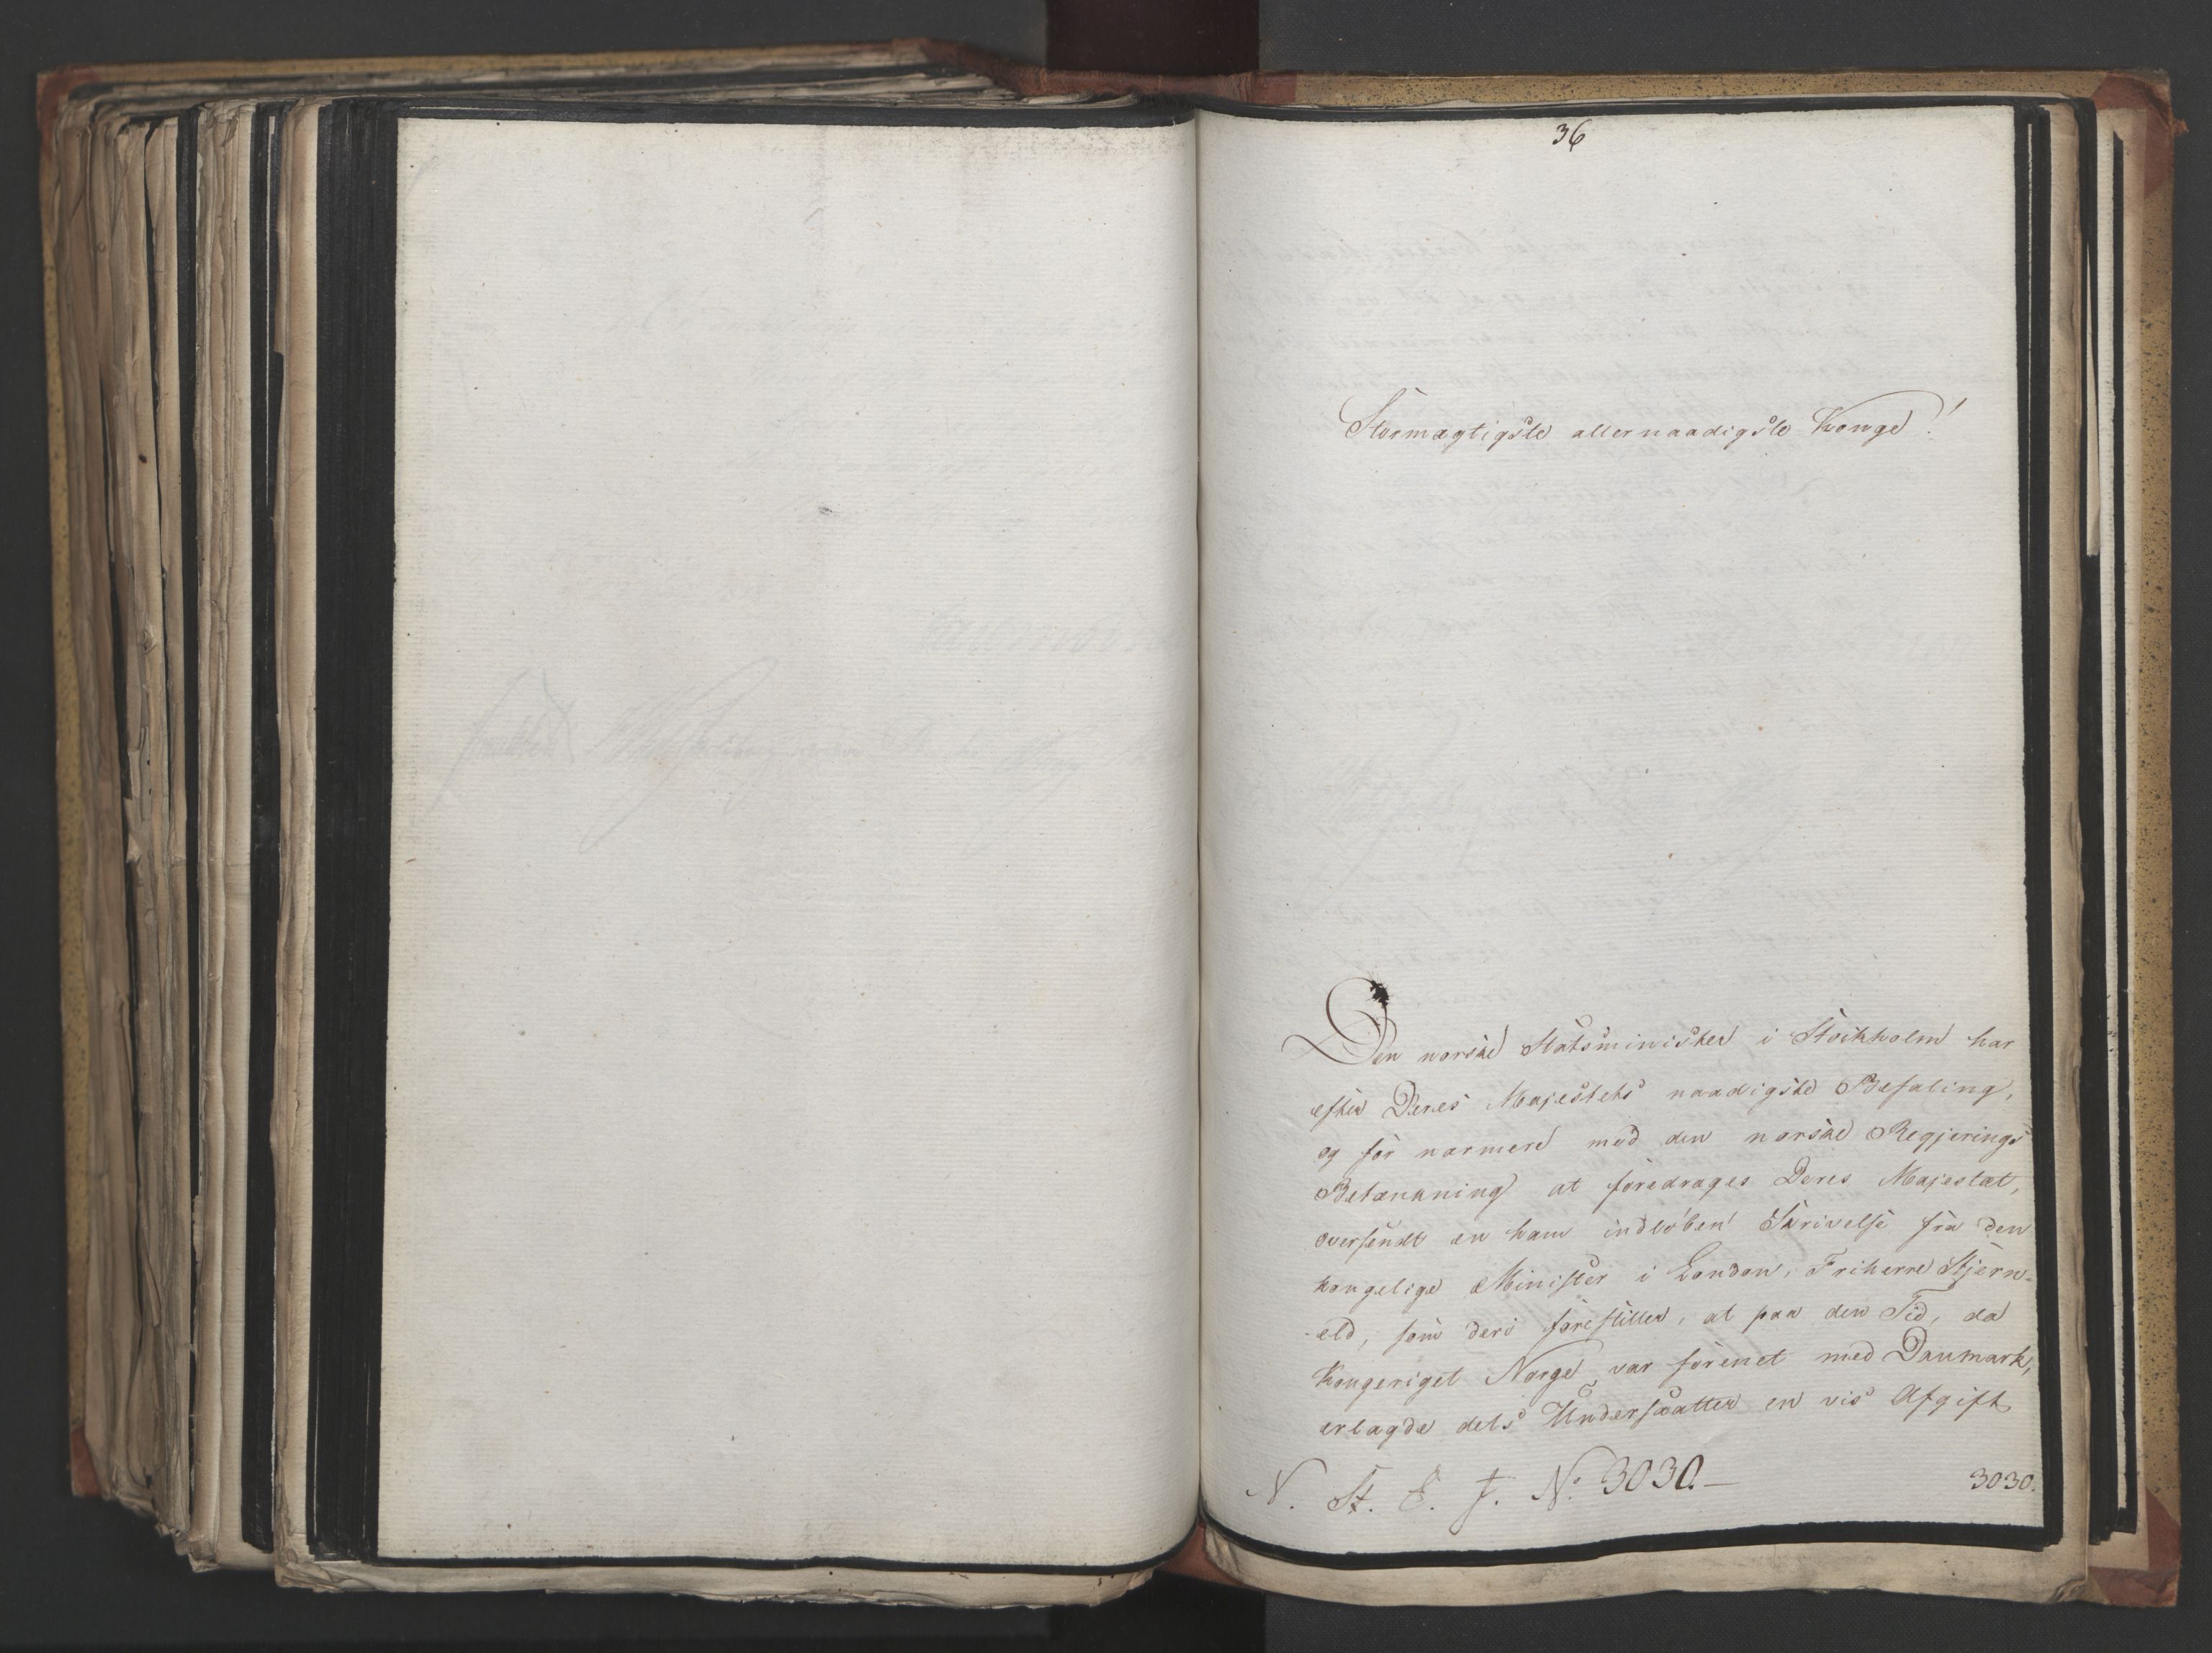 36
Stormægtigste allernaadigste Konge!
Den norske Statsminister i Stockholm har
efter Deres Majestets naadigste Befaling,
og for nærmere med den norske Regjerings
Betænkning at foredrages Deres Majestæt,
oversendt en ham indløben Skrivelse fra den
kongelige Minister i London, Friherre Stjern-
-eld, som deri forestiller, at paa den Tid, da
Kongeriget Norge var forenet med Danmark,
erlagde dets Undersaatter en vis Afgift
N. St. E. J. No. 3030.—
3030.